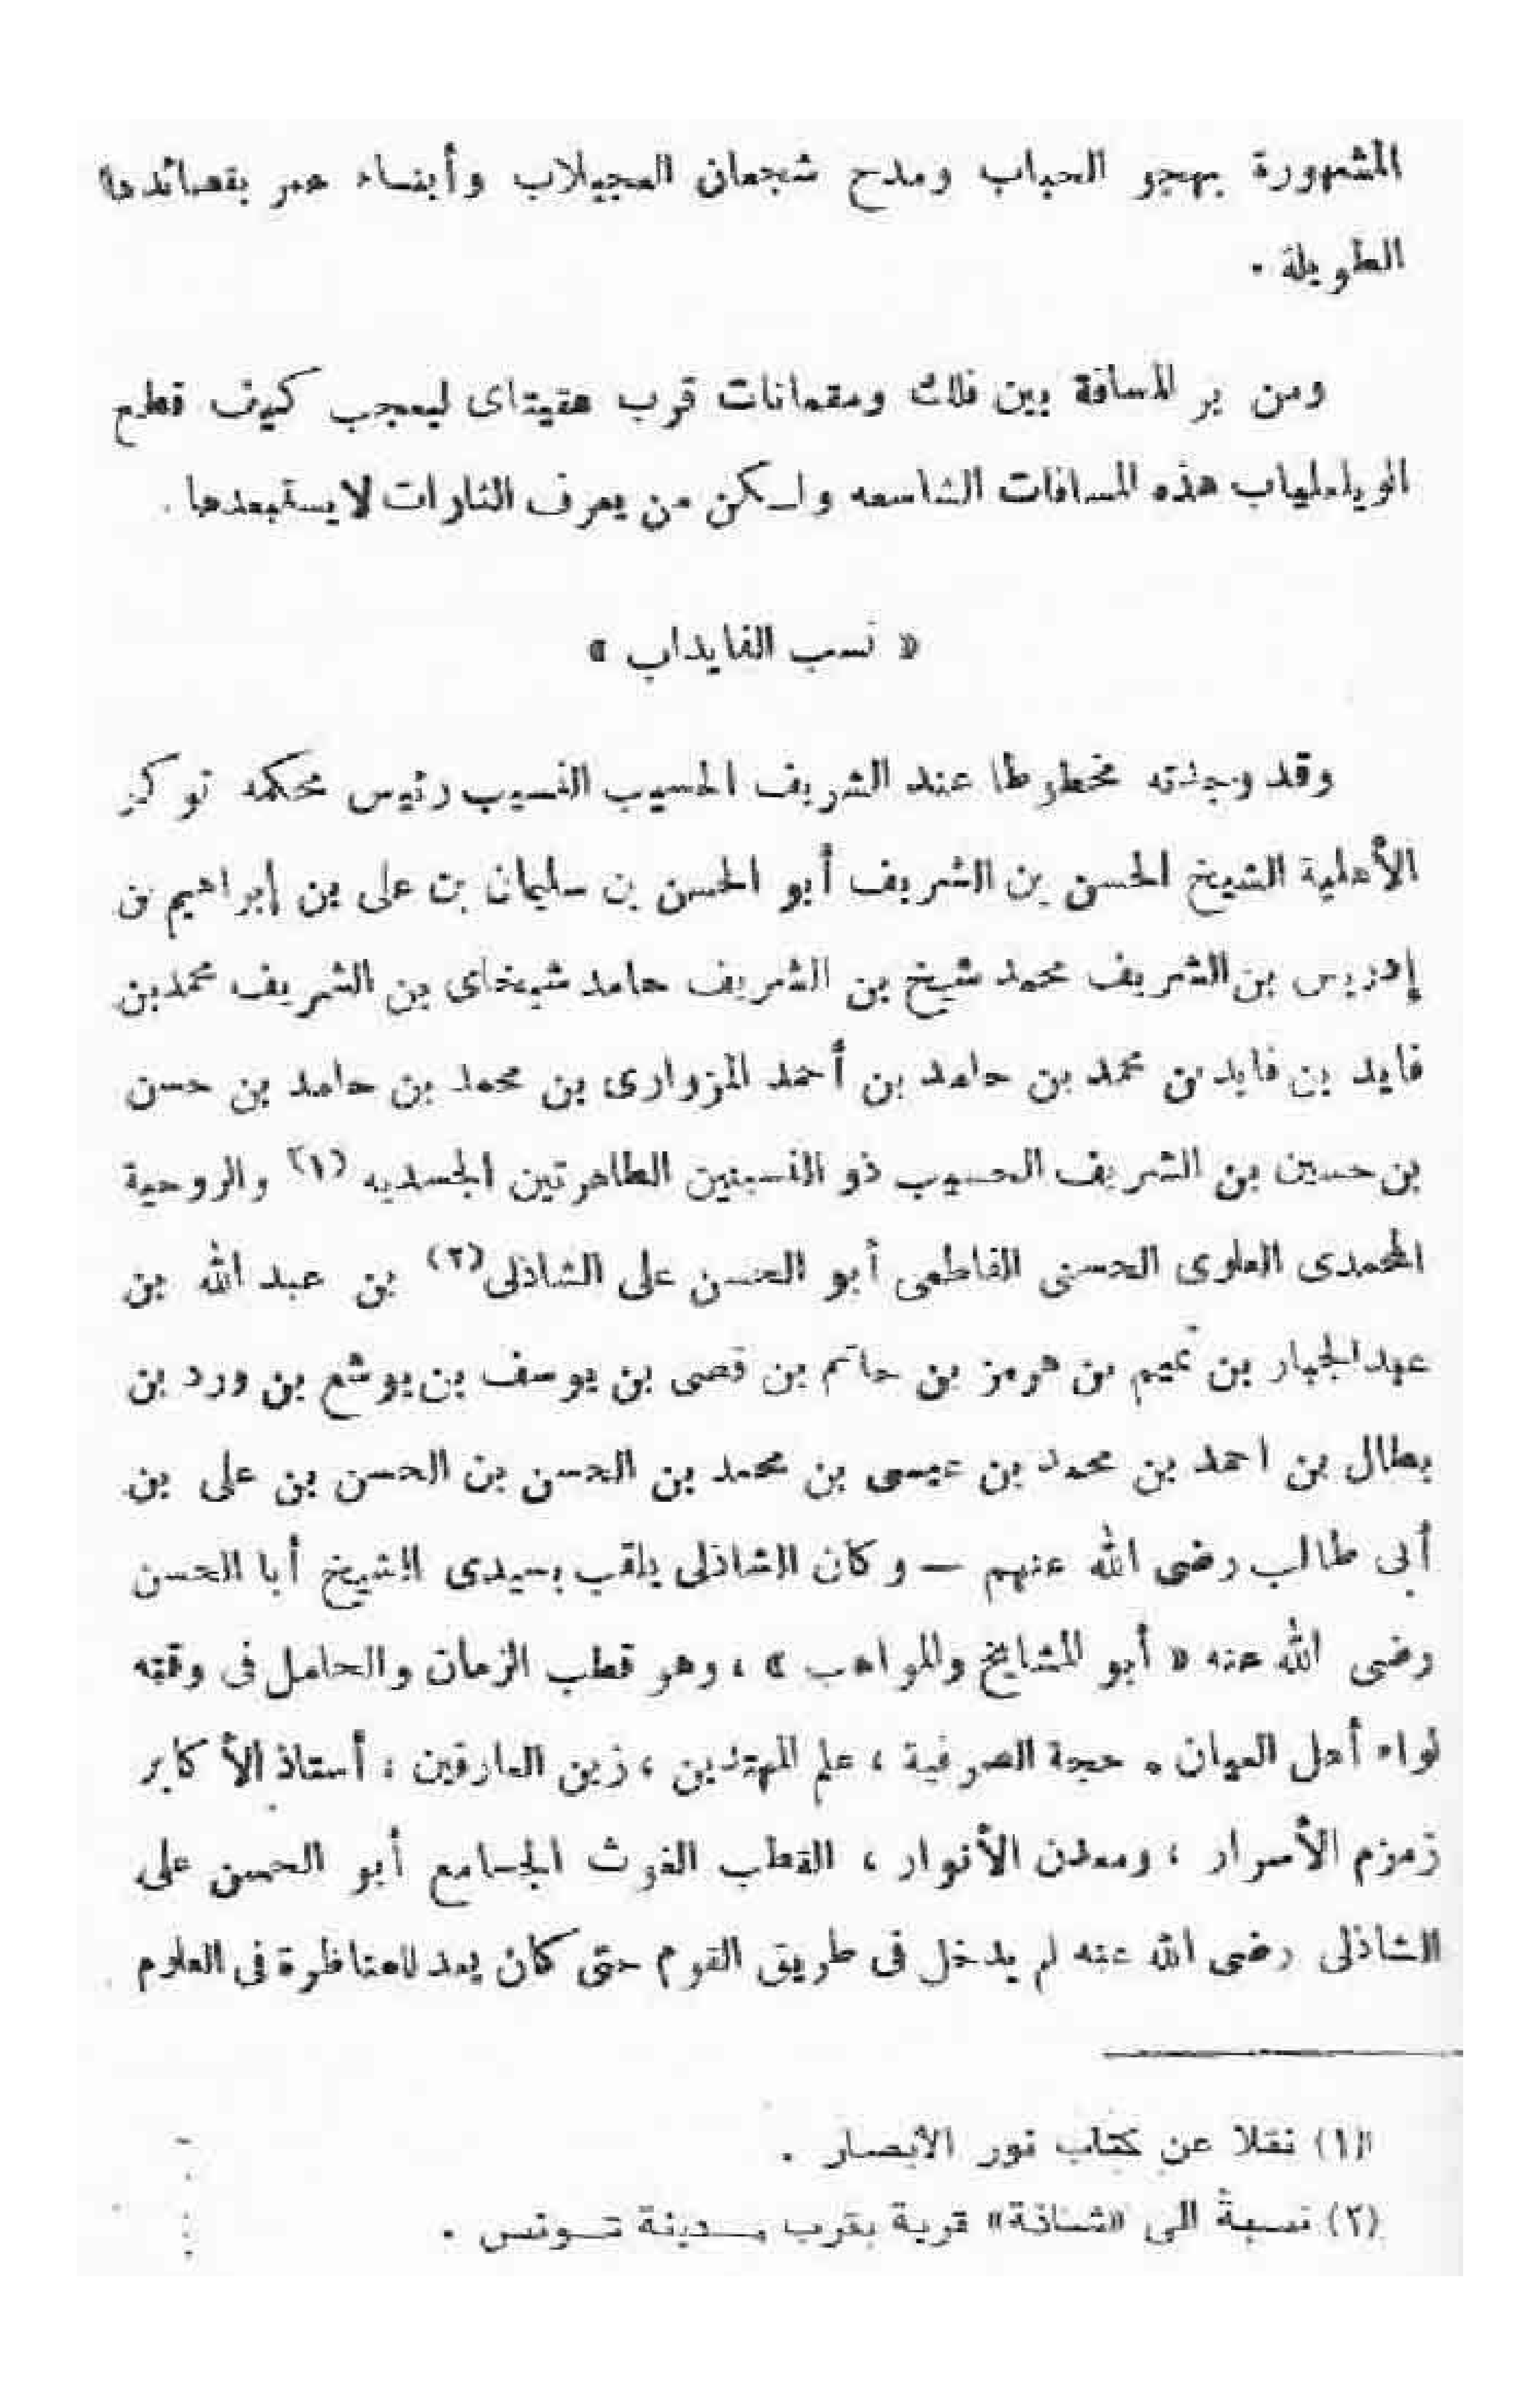 المشهورة بهجو الحباب ومدح شجعان العجيلاب وأبناء عمر بقصائدها
الطويلة .
ومن ير المسافة بين فلك ومقمانات قرب هقيتاى ليعجب كيف قطع
الويلعلياب هذه المسافات الشاسعه ولكن من يعرف الثارات لا يستبعدها .
« نسب الفايداب »
وقد وجدته مخطوطا عند الشريف الحسيب النسيب رئيس محكمه توكر
الأهلية الشيخ الحسن بن الشريف أبو الحسن بن سليمان بن على بن إبراهيم بن
إدريس بن الشريف محمد شيخ بن الشريف حامد شيخاى بن الشريف محمد بن
فايد بن فايد بن محمد بن حامد بن أحمد المزوارى بن محمد بن حامد بن حسن
بن حسين بن الشريف الحسيب ذو النسبتين الطاهرتين الجسديه (١) والروحية
المحمدى العلوى الحسنى الفاطمى أبو الحسن على الشاذلى (٢) بن عبد الله بن
عبد الجبار بن تميم بن هرمز بن حاتم بن قصى بن يوسف بن يوشع بن ورد بن
بطال بن احمد بن محمد بن عيسى بن محمد بن الحسن بن الحسن بن على بن
أبى طالب رضى الله عنهم — وكان الشاذلى يلقب بسيدى الشيخ أبا الحسن
رضى الله عنه « أبو المشايخ والمواهب » ، وهو قطب الزمان والحامل فى وقته
لواء أهل العيان . حجة الصوفية ، علم المهتدين ، زين العارفين ، أستاذ الأكابر
زمزم الأسرار ، ومعدن الأنوار ، القطب الغوث الجامع أبو الحسن على
الشاذلى رضى الله عنه لم يدخل فى طريق القوم حتى كان يعد للمناظرة فى العلوم
(١) نقلا عن كتاب نور الأبصار .
(٢) نسبة الى «شاذة» قرية بقرب مدينة تونس .